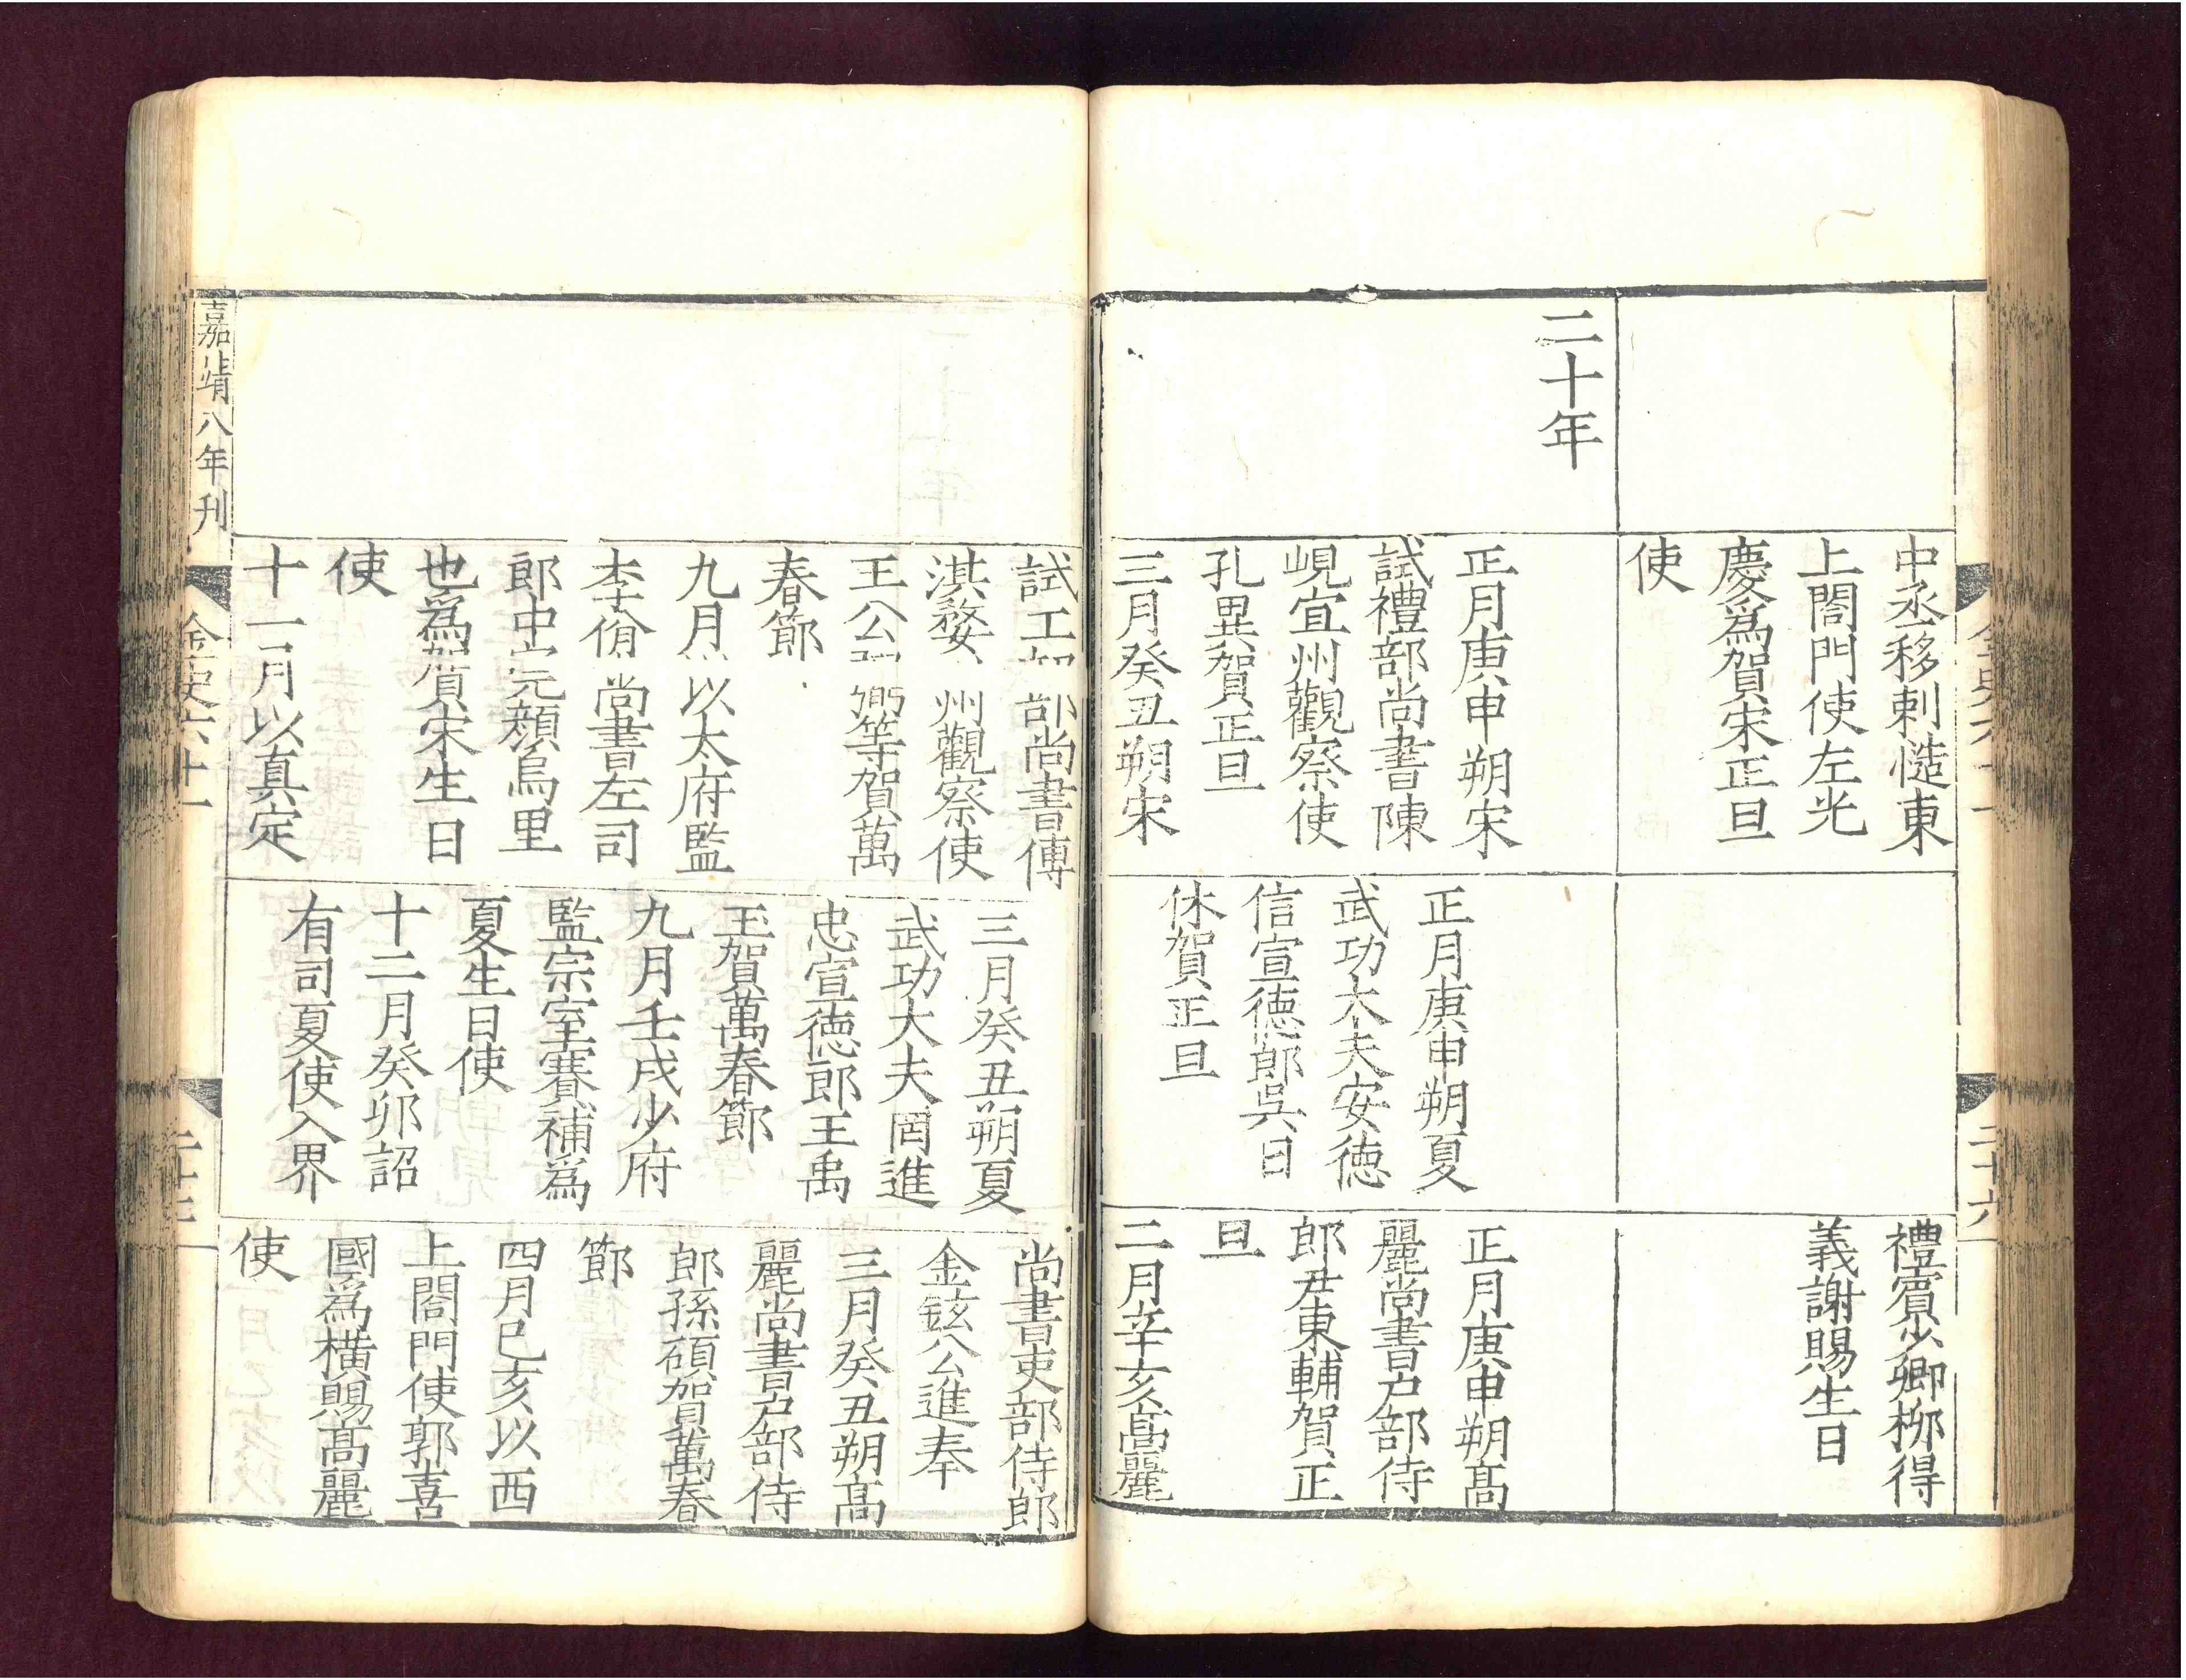 中丞移剌慥東
上閤門使左光
慶爲賀宋正旦
使
禮賓少卿栁得
義謝賜生日
二十年
正月庚申朔宋
試禮部尚書陳
峴宜州觀察使
孔異賀正旦
三月癸丑朔宋
正月庚申朔夏
武功大夫安徳
信宣徳郎吳日
休賀正旦
正月庚申朔髙
麗尚書户部侍
郎尹東輔賀正
旦
二月辛亥髙麗
試工部尚書傅
淇婺州觀察使
王公弼等賀萬
春節
九月以太府監
李佾尚書左司
郎中完顏烏里
也爲賀宋生日
使
十一月以真定
三月癸丑朔夏
武功大夫罔進
忠宣徳郎王禹
玉賀萬春節
九月壬戌少府
監宗室賽補爲
夏生日使
十二月癸卯詔
有司夏使入界
尚書吏部侍郎
金鉉公進奉
三月癸丑朔髙
麗尚書户部侍
郎孫碩賀萬春
節
四月巳亥以西
上閤門使郭喜
國爲橫賜髙麗
使
嘉靖八年刊
金史六十一
二十七